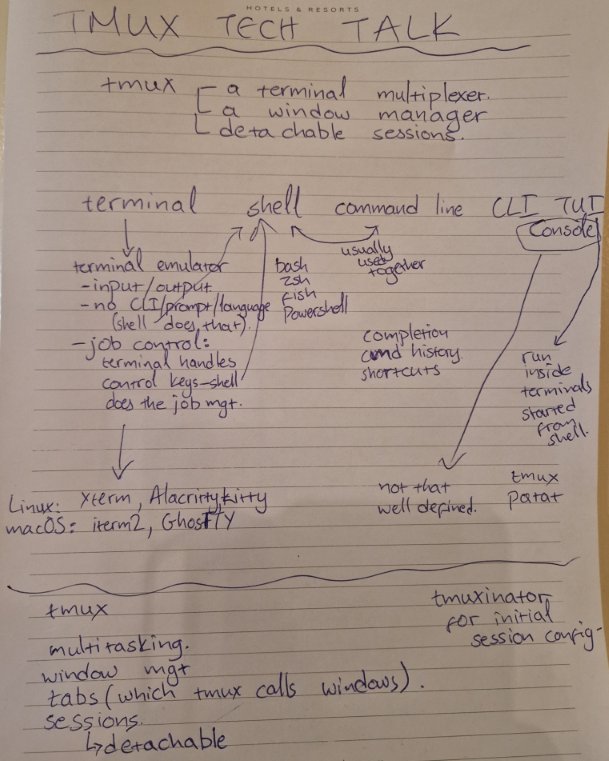 HOTELS & RESORTS
TMUX TECH TALK
tmux
a terminal multiplexer.
a window manager
detachable sessions.
terminal shell command line CLI TUI
Console
terminal emulator
-input/output
-no CLI/prompt/language
(shell does that).
-job control:
terminal handles
control keys-shell
does the job mgt.
bash
zsh
fish
Powershell
usually
used
together
completion
cmd history
shortcuts
run
inside
terminals
started
from
shell.
Linux: xterm, Alacritty, kitty
macOS: iterm2, GhosTTY
not that
well defined.
tmux
parat
tmux
multitasking.
window mgt
tabs (which tmux calls windows).
sessions.
↳detachable
tmuxinator
for initial
session config-